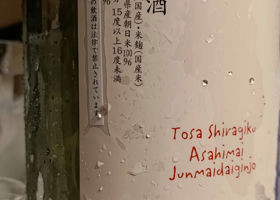 酒
国産・米麹(国産米)
県産朝日米100%
分15度以上16度未満
の飲酒は法律で禁止されています。
Tosa Shiragiku
Asahimai
Junmaidaiginjo